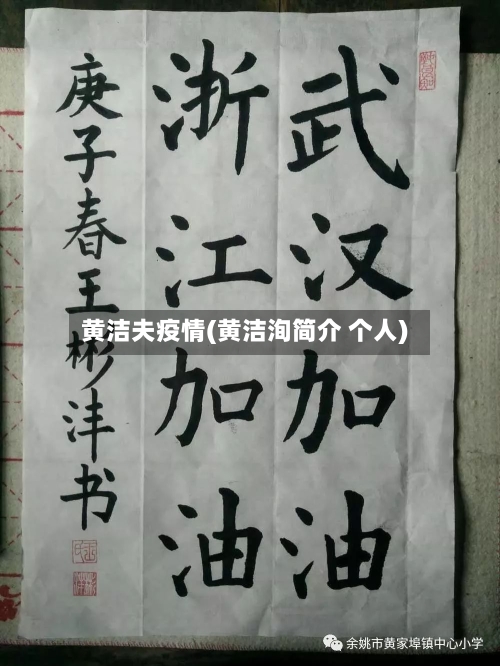 武汉加油
浙江加油
庚子春王彬沣书
黄洁夫疫情(黄洁洵简介 个人)
余姚市黄家埠镇中心小学